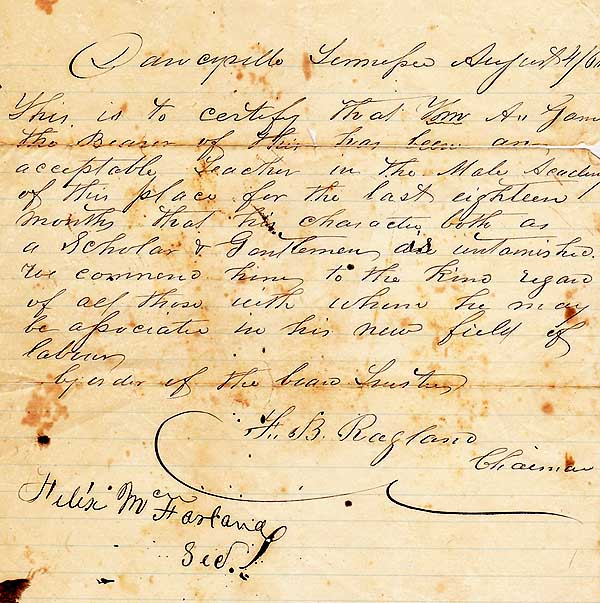 Dancyville Tennessee August 4/6
This is to certify that Wm A.
the Bearer of this has been an
acceptable Teacher in the Male Academy
of this place for the last eighteen
months that his character both as
a Scholar & Gentlemen is untarnished.
We commend him to the kind regard
of all those with whom he may
be associated in his new field of
labour
by order of the board Trustees
F. B. Ragland
Chairman
Felix McFarland
Sec.